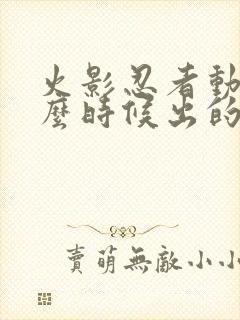 火影忍者動
麼時候出的
賣萌無敵小小